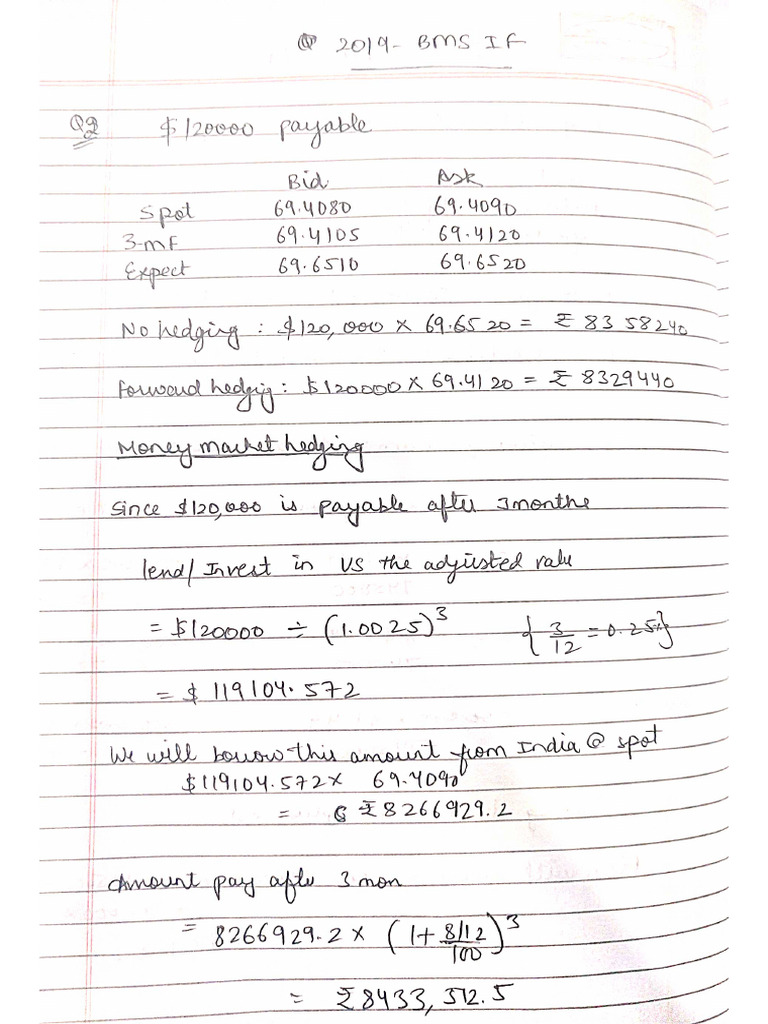 2019- BMS IF
Q2 $120000 payable
Bid Ask
Spot 69.4080 69.4090
3-mF 69.4105 69.4120
Expect 69.6510 69.6520
No hedging : $120,000 × 69.6520 = ₹ 8358240
Forward hedgig : $120000 × 69.4120 = ₹ 8329440
Money market hedging
Since $120,000 is payable after 3 months
lend/ Invest in US the adjusted rate
= $120000 ÷ (1.0025)³ { 3/12 = 0.25% }
= $ 119104.572
We will borrow this amount from India @ spot
$119104.572 × 69.4090
= ₹ 8266929.2
Amount pay after 3 mon
= 8266929.2 × (1 + 8/12/100)³
= ₹ 8433,512.5